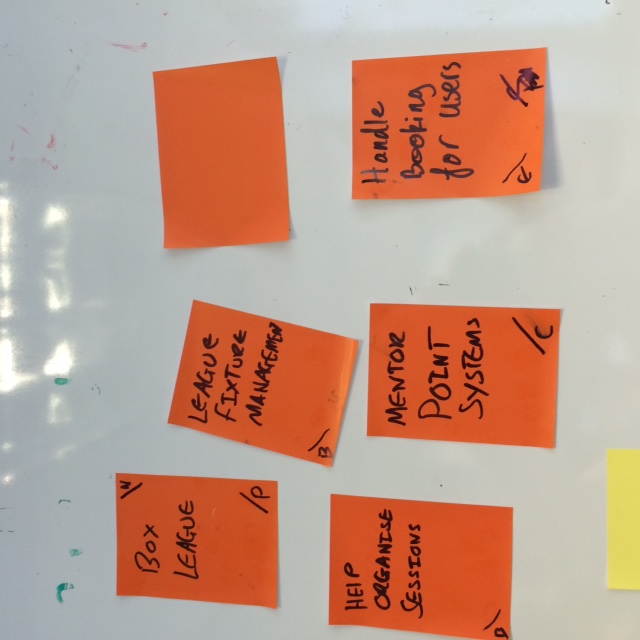 W
BOX
LEAGUE
P
LEAGUE
FIXTURE
MANAGEMENT
B
HELP
ORGANISE
SESSIONS
D
MENTOR
POINT
SYSTEMS
C
Handle
Booking
for users
C